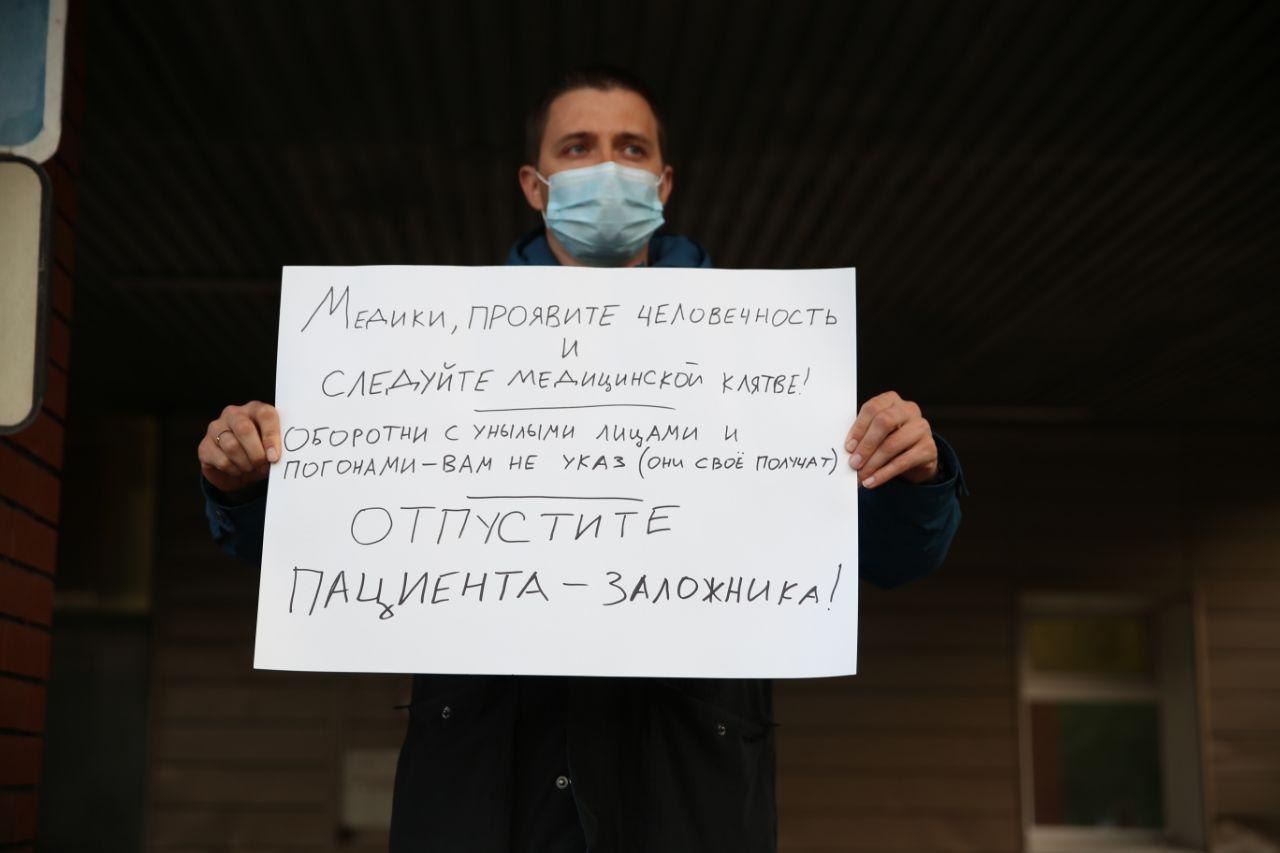 Медики, проявите человечность
и
следуйте медицинской клятве!
Оборотни с унылыми лицами и
погонами – вам не указ (они своё получат)
ОТПУСТИТЕ
ПАЦИЕНТА – ЗАЛОЖНИКА!